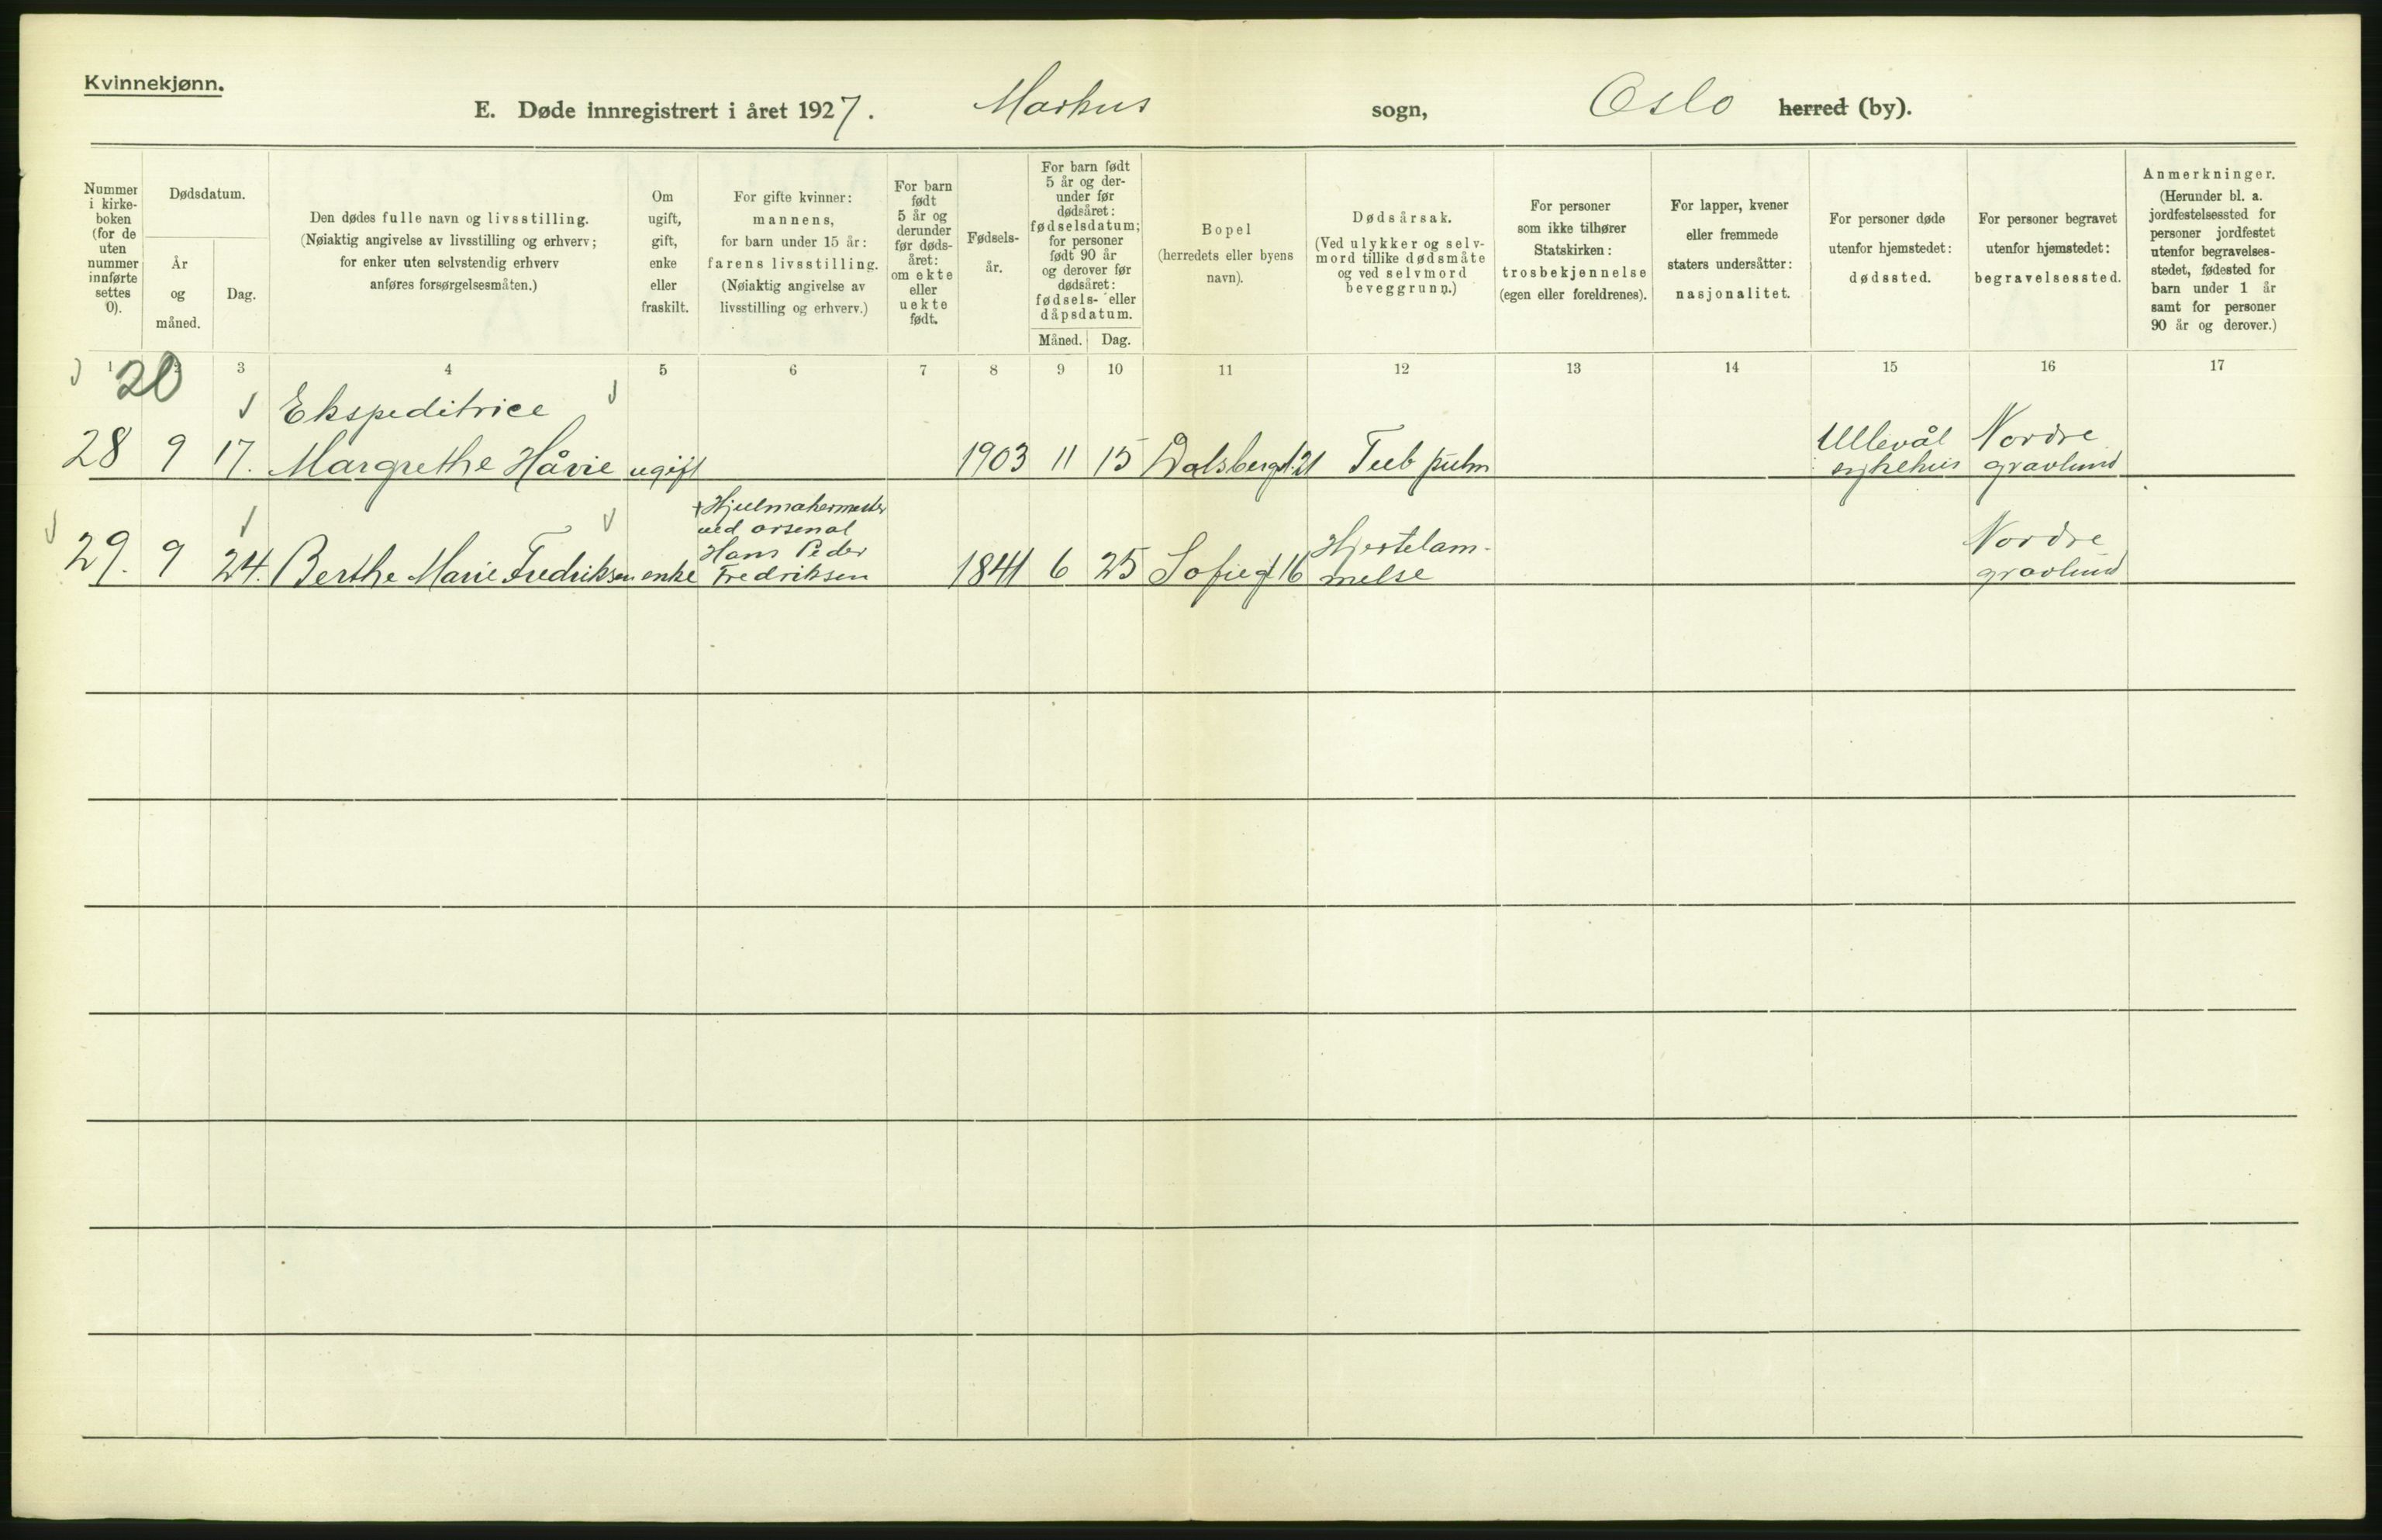 Kvinnekjønn.
E. Døde innregistrert i året 1927. Markus sogn, Oslo herred (by).
Nummer
i kirke-
boken
(for de
uten
nummer
innførte
settes
0).
Dødsdatum.
År
og
måned.
Dag.
Den dødes fulle navn og livsstilling.
(Nøiaktig angivelse av livsstilling og erhverv;
for enker uten selvstendig erhverv
anføres forsørgelsesmåten.)
Om
ugift,
gift,
enke
eller
fraskilt.
For gifte kvinner:
mannens,
for barn under 15 år:
farens livsstilling.
(Nøiaktig angivelse av
livsstilling og erhverv.)
For barn
født
5 år og
derunder
før døds-
året:
om ekte
eller
uekte
født.
Fødsels-
år.
For barn født
5 år og der-
under før
dødsåret:
fødselsdatum;
for personer
født 90 år
og derover før
dødsåret:
fødsels- eller
dåpsdatum.
Måned. Dag.
Bopel
(herredets eller byens
navn).
Dødsårsak.
(Ved ulykker og selv-
mord tillike dødsmåte
og ved selvmord
beveggrunn.)
For personer
som ikke tilhører
Statskirken:
trosbekjennelse
(egen eller foreldrenes).
For lapper, kvener
eller fremmede
staters undersåtter:
nasjonalitet.
For personer døde
utenfor hjemstedet:
dødssted.
For personer begravet
utenfor hjemstedet:
begravelsessted.
Anmerkninger.
(Herunder bl. a.
jordfestelsessted for
personer jordfestet
utenfor begravelses-
stedet, fødested for
barn under 1 år
samt for personer
90 år og derover.)
1 2 3 4 5 6 7 8 9 10 11 12 13 14 15 16 17
20
Ekspeditrice
28 9 17. Margrethe Håvie ugift 1903 11 15 Dalsbergst. 21 Tub pulm
Ullevål
sykehus
Nordre
gravlund
+Hjulmakermester
ved arsenal
Hans Peder
Fredriksen
29. 9 24. Berthe Marie Fredriksen enke 1841 6 25 Sofiegt 16
Hjertelam-
melse
Nordre
gravlund